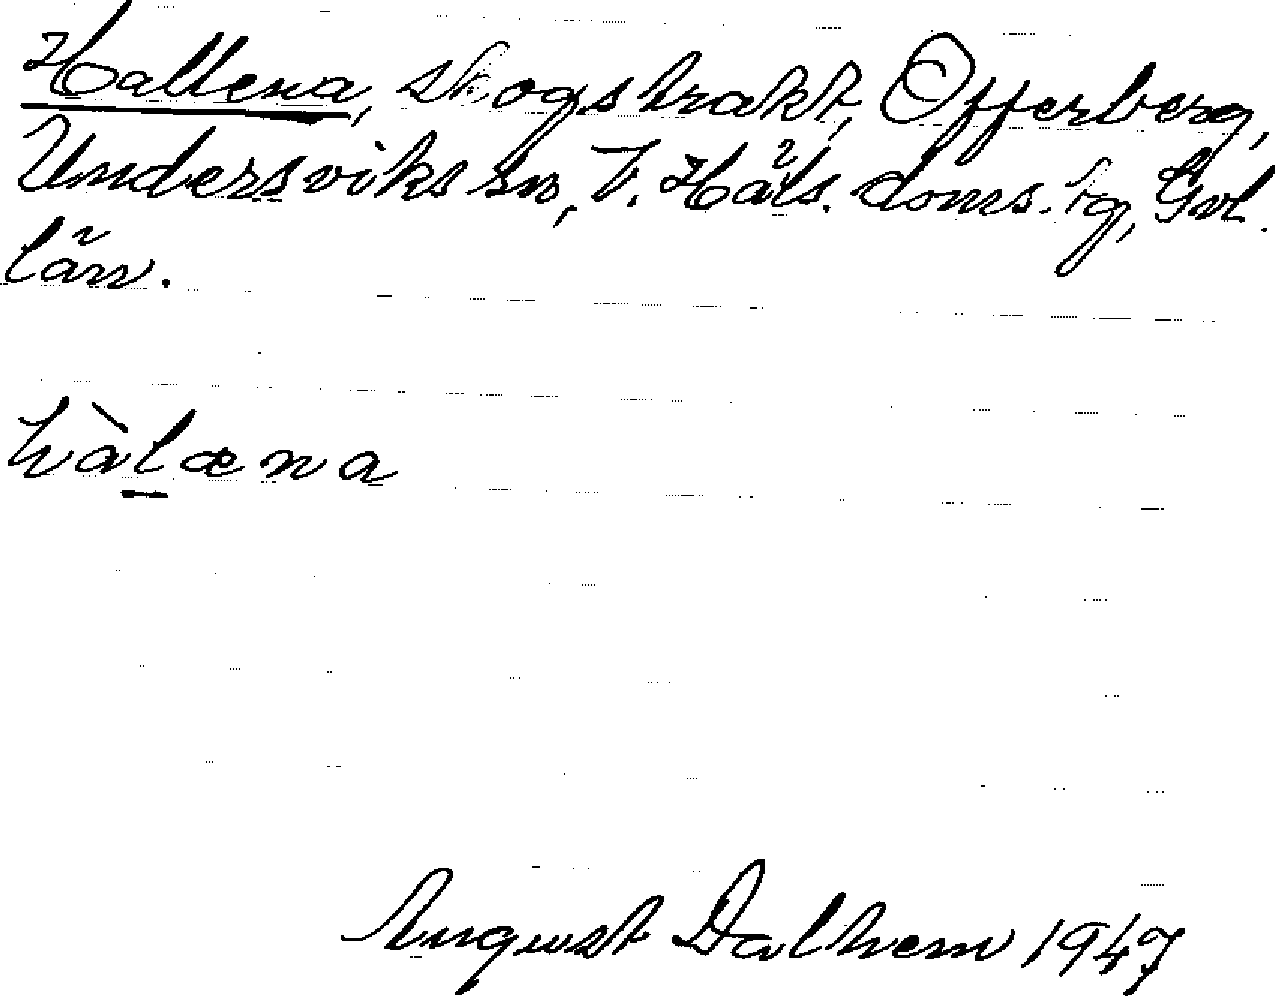 Hallena, skogstrakt, Offerberg,
Undersviks sn, V. Häls. doms. sg, Gvl.
län.
hàlæna
August Dalhem 1947